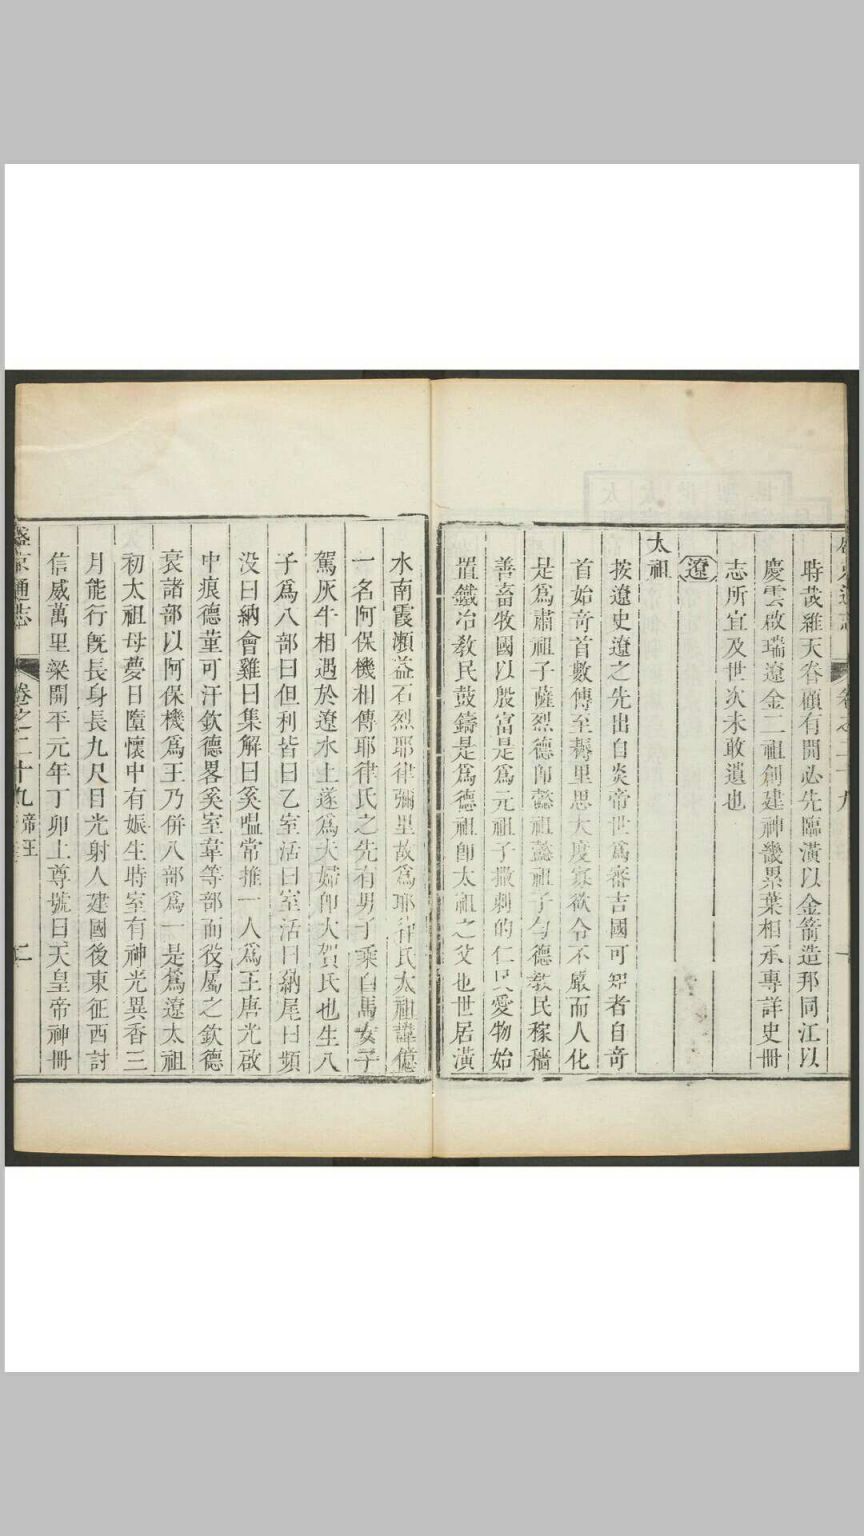 時哉雖天眷顧有開必先臨潢以金箭造邦同江以
慶雲啟瑞遼金二祖創建神畿累葉相承專詳史冊
志所宜及世次未敢遺也
遼
太祖
按遼史遼之先出自炎帝世爲審吉國可知者自奇
首始奇首數傳至耨里思大度寡欲令不嚴而人化
是爲肅祖子薩烈德即懿祖懿祖子勻德教民稼穡
善畜牧國以殷富是爲元祖子撒剌的仁民愛物始
置鐵冶教民鼓鑄是爲德祖即太祖之父也世居潢
水南霞瀨益石烈耶律彌里故爲耶律氏太祖諱億
一名阿保機相傳耶律氏之先有男子乘白馬女子
駕灰牛相遇於遼水上遂爲夫婦即大賀氏也生八
子爲八部曰但利皆曰乙室活曰室活曰納尾曰頻
没曰納會雞曰集解曰奚嗢常推一人爲王唐光啟
中痕德菫可汗欽德畧奚室韋等部而役屬之欽德
衰諸部以阿保機爲王乃併八部爲一是爲遼太祖
初太祖母夢日墮懷中有娠生時室有神光異香三
月能行旣長身長九尺目光射人建國後東征西討
信威萬里梁開平元年丁卯上尊號曰天皇帝神冊
盛京通志 卷之二十九 帝王 二